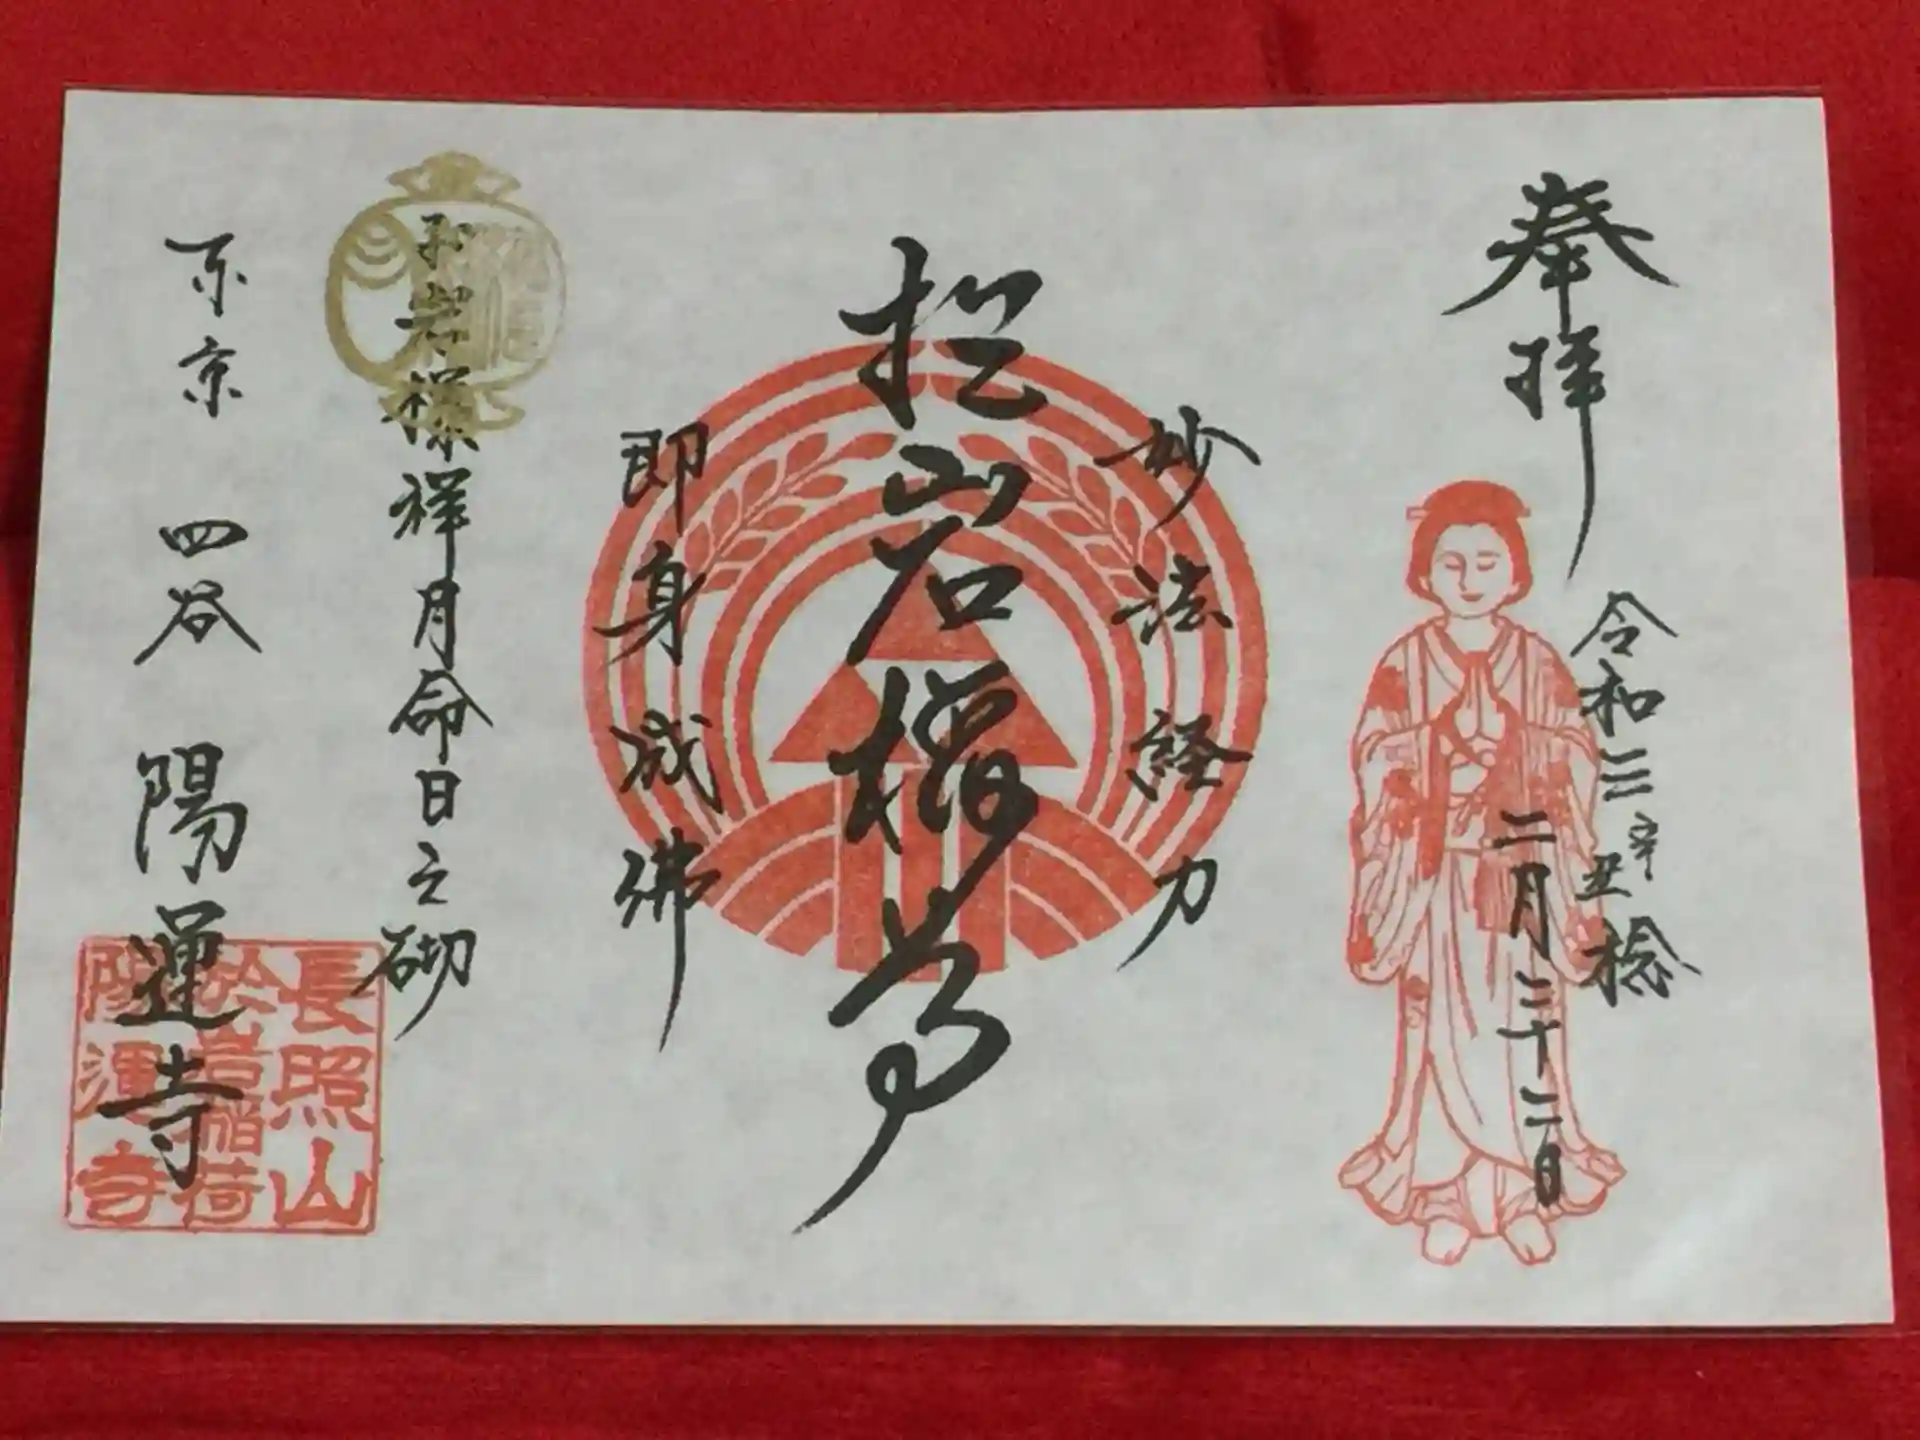 奉拝
令和三辛丑稔
二月二十二日
妙法経力
於岩稲荷
即身成佛
お岩様祥月命日之砌
東京 四谷 陽運寺
長照山
於岩稲荷
陽運寺